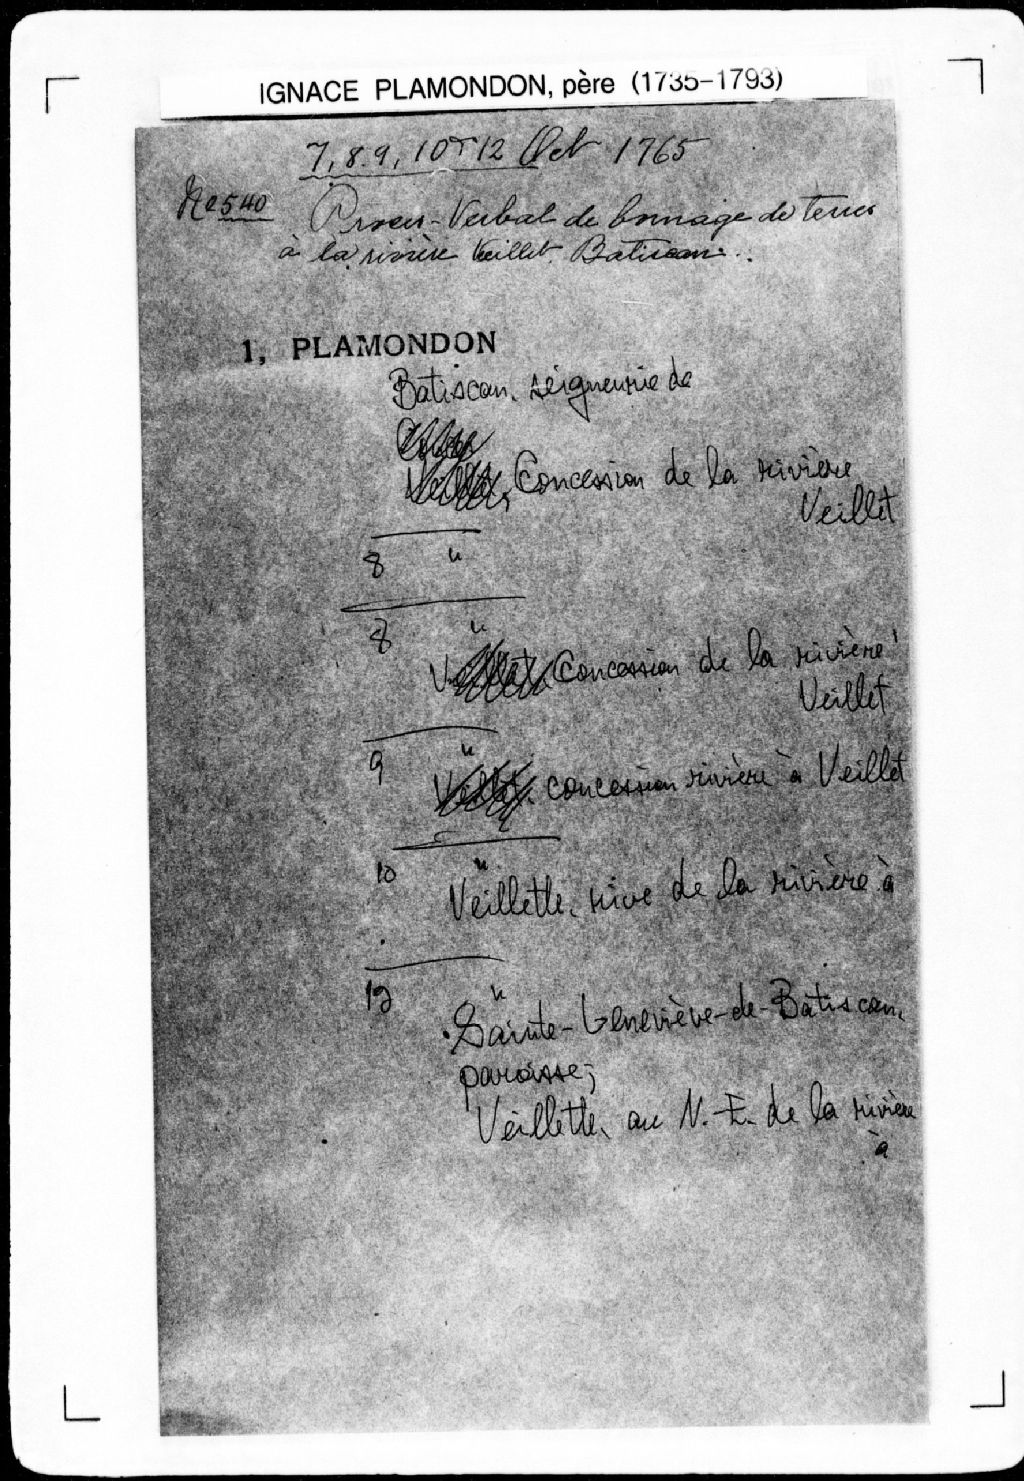 IGNACE PLAMONDON, père (1735-1793)
7, 8, 9, 10 & 12 Oct 1765
No 540 Proces-Verbal de bornage de terres
à la rivière Veillet. Batiscan.
1, PLAMONDON
Batiscan, seigneurie de
Concession de la rivière
Veillet
8 "
8 "
Concession de la rivière
Veillet
9 "
concession rivière à Veillet
10 "
Veillette, rive de la rivière à
12 "
Sainte-Geneviève-de-Batiscan,
paroisse;
Veillette, au N.-E. de la rivière
à